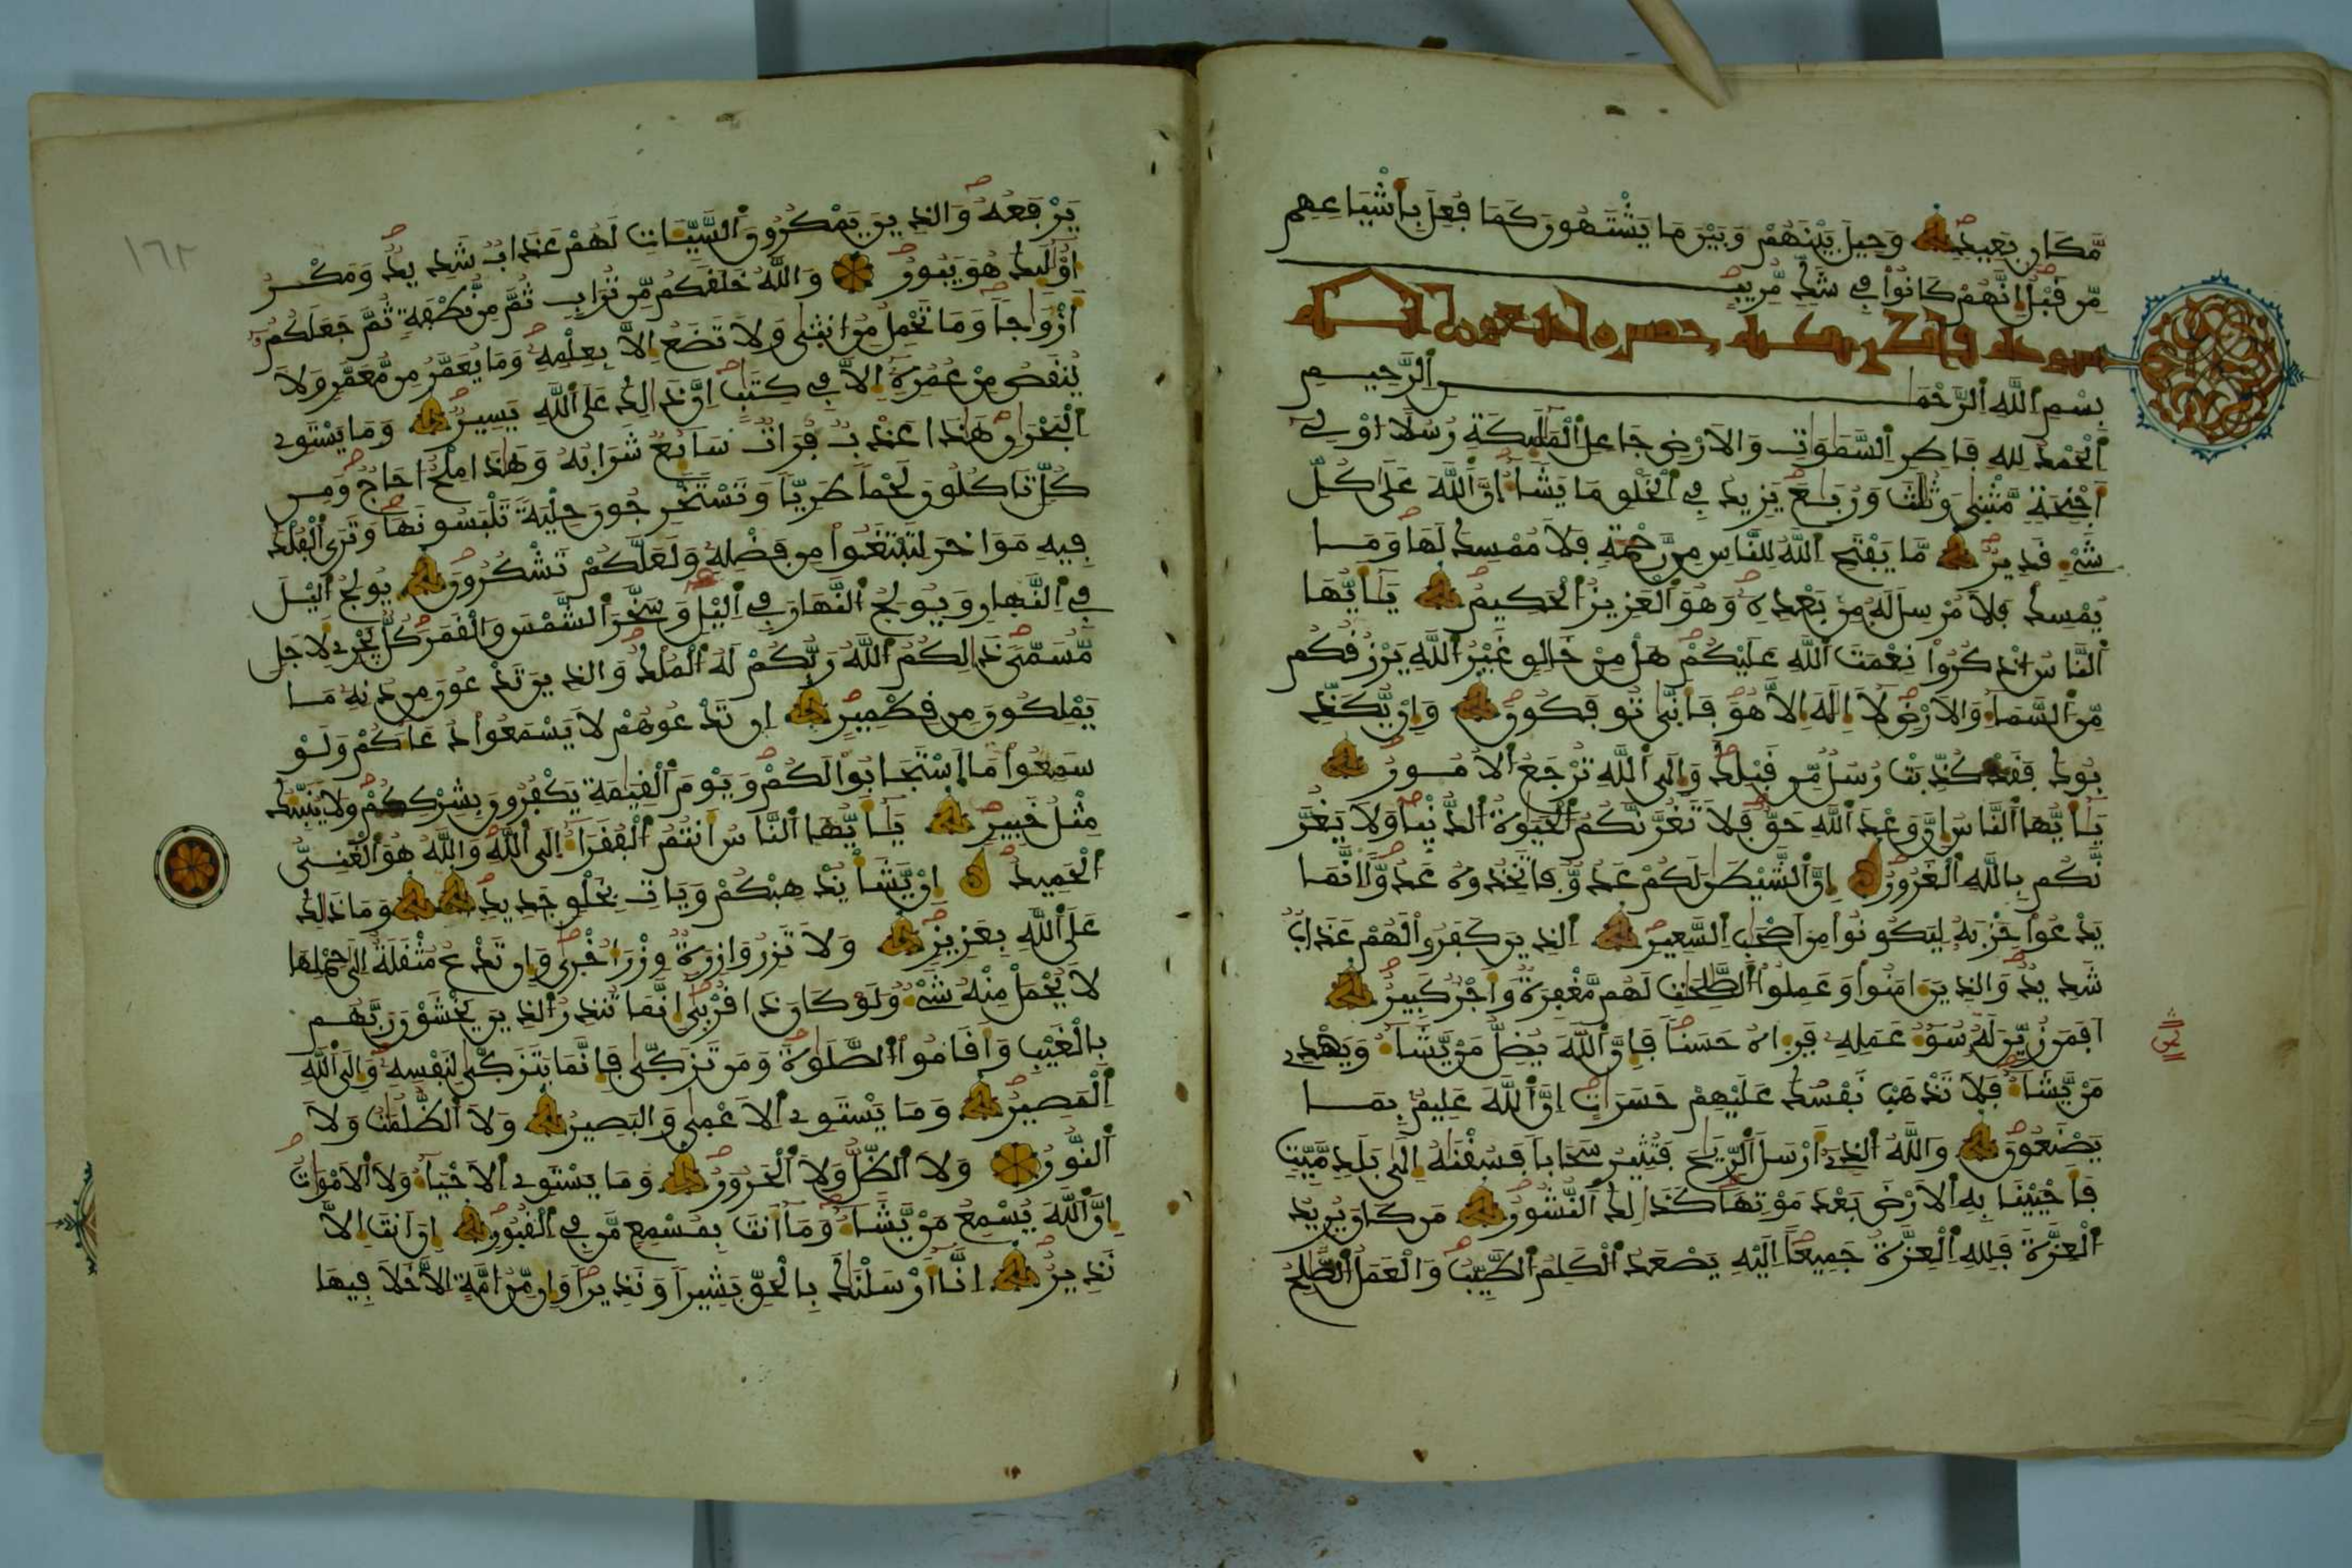 مَّكَانٍ بَعِيدٍ وَحِيلَ بَيْنَهُمْ وَبَيْنَ مَا يَشْتَهُونَ كَمَا فُعِلَ بِأَشْيَاعِهِم
مِّن قَبْلُ إِنَّهُمْ كَانُوا۟ فِي شَكٍّ مُّرِيبٍ
سورة فاطر مكية خمس وأربعون آية
بِسْمِ اللَّهِ الرَّحْمَٰنِ الرَّحِيمِ
الْحَمْدُ لِلهِ فَاطِرِ السَّمَٰوَٰتِ وَالَارْضِ جَاعِلِ الْمَلَٰٓئِكَةِ رُسُلًا اوْلِي
أَجْنِحَةٍ مَّثْنَىٰ وَثُلَٰثَ وَرُبَٰعَ يَزِيدُ فِي الْخَلْقِ مَا يَشَآءُ إِنَّ اللَّهَ عَلَىٰ كُلِّ
شَيْءٍ قَدِيرٌ مَّا يَفْتَحِ اللَّهُ لِلنَّاسِ مِن رَّحْمَةٍ فَلَا مُمْسِكَ لَهَا وَمَا
يُمْسِكْ فَلَا مُرْسِلَ لَهُ مِنۢ بَعْدِهِ وَهُوَ الْعَزِيزُ الْحَكِيمُ يَٰٓأَيُّهَا
النَّاسُ اذْكُرُوا۟ نِعْمَتَ اللَّهِ عَلَيْكُمْ هَلْ مِنْ خَٰلِقٍ غَيْرُ اللَّهِ يَرْزُقُكُم
مِّنَ السَّمَآءِ وَالَارْضِ لَآ إِلَٰهَ إِلَّا هُوَ فَأَنَّىٰ تُوفَكُونَ وَإِنْ يُّكَذِّ
بُوكَ فَقَدْ كُذِّبَتْ رُسُلٌ مِّن قَبْلِكَ وَإِلَى اللَّهِ تُرْجَعُ الُامُورُ
يَٰٓأَيُّهَا النَّاسُ إِنَّ وَعْدَ اللَّهِ حَقٌّ فَلَا تَغُرَّنَّكُمُ الْحَيَوٰةُ الدُّنْيَا وَلَا يَغُرَّ
نَّكُم بِاللَّهِ الْغَرُورُ إِنَّ الشَّيْطَٰنَ لَكُمْ عَدُوٌّ فَاتَّخِذُوهُ عَدُوًّا إِنَّمَا
يَدْعُوا۟ حِزْبَهُ لِيَكُونُوا۟ مِنَ اصْحَٰبِ السَّعِيرِ الذِينَ كَفَرُوا۟ لَهُمْ عَذَابٌ
شَدِيدٌ وَالذِينَ ءَامَنُوا۟ وَعَمِلُوا۟ الصَّٰلِحَٰتِ لَهُم مَّغْفِرَةٌ وَأَجْرٌ كَبِيرٌ
أَفَمَن زُيِّنَ لَهُ سُوٓءُ عَمَلِهِ فَرِءَاهُ حَسَنًا فَإِنَّ اللَّهَ يُضِلُّ مَنْ يَّشَآءُ وَيَهْدِي
مَنْ يَّشَآءُ فَلَا تَذْهَبْ نَفْسُكَ عَلَيْهِمْ حَسَرَاتٍ إِنَّ اللَّهَ عَلِيمٌ بِمَا
يَصْنَعُونَ وَاللَّهُ الذِي أَرْسَلَ الرِّيَٰحَ فَتُثِيرُ سَحَابًا فَسُقْنَٰهُ إِلَىٰ بَلَدٍ مَّيِّتٍ
فَأَحْيَيْنَا بِهِ الَارْضَ بَعْدَ مَوْتِهَا كَذَٰلِكَ النُّشُورُ مَن كَانَ يُرِيدُ
الْعِزَّةَ فَلِلهِ الْعِزَّةُ جَمِيعًا إِلَيْهِ يَصْعَدُ الْكَلِمُ الطَّيِّبُ وَالْعَمَلُ الصَّٰلِحُ
١٦٢
يَرْفَعُهُ وَالذِينَ يَمْكُرُونَ السَّيِّـَٔاتِ لَهُمْ عَذَابٌ شَدِيدٌ وَمَكْرُ
أُوْلَٰٓئِكَ هُوَ يَبُورُ وَاللَّهُ خَلَقَكُم مِّن تُرَابٍ ثُمَّ مِن نُّطْفَةٍ ثُمَّ جَعَلَكُمُ
أَزْوَٰجًا وَمَا تَحْمِلُ مِنُ انثَىٰ وَلَا تَضَعُ إِلَّا بِعِلْمِهِ وَمَا يُعَمَّرُ مِن مُّعَمَّرٍ وَلَا
يُنقَصُ مِنْ عُمُرِهِ إِلَّا فِي كِتَٰبٍ إِنَّ ذَٰلِكَ عَلَى اللَّهِ يَسِيرٌ وَمَا يَسْتَوِي
الْبَحْرَٰنِ هَٰذَا عَذْبٌ فُرَاتٌ سَآئِغٌ شَرَابُهُ وَهَٰذَا مِلْحٌ اجَاجٌ وَمِن
كُلٍّ تَاكُلُونَ لَحْمًا طَرِيًّا وَتَسْتَخْرِجُونَ حِلْيَةً تَلْبَسُونَهَا وَتَرَى الْفُلْكَ
فِيهِ مَوَاخِرَ لِتَبْتَغُوا۟ مِن فَضْلِهِ وَلَعَلَّكُمْ تَشْكُرُونَ يُولِجُ الَيْلَ
فِي النَّهَارِ وَيُولِجُ النَّهَارَ فِي الَيْلِ وَسَخَّرَ الشَّمْسَ وَالْقَمَرَ كُلٌّ يَجْرِي لِأَجَلٍ
مُّسَمًّى ذَٰلِكُمُ اللَّهُ رَبُّكُمْ لَهُ الْمُلْكُ وَالذِينَ تَدْعُونَ مِن دُونِهِ مَا
يَمْلِكُونَ مِن قِطْمِيرٍ إِن تَدْعُوهُمْ لَا يَسْمَعُوا۟ دُعَآءَكُمْ وَلَوْ
سَمِعُوا۟ مَا اسْتَجَابُوا۟ لَكُمْ وَيَوْمَ الْقِيَٰمَةِ يَكْفُرُونَ بِشِرْكِكُمْ وَلَا يُنَبِّئُكَ
مِثْلُ خَبِيرٍ يَٰٓأَيُّهَا النَّاسُ أَنتُمُ الْفُقَرَآءُ إِلَى اللَّهِ وَاللَّهُ هُوَ الْغَنِيُّ
الْحَمِيدُ إِنْ يَّشَأْ يُذْهِبْكُمْ وَيَاتِ بِخَلْقٍ جَدِيدٍ وَمَا ذَٰلِكَ
عَلَى اللَّهِ بِعَزِيزٍ وَلَا تَزِرُ وَازِرَةٌ وِزْرَ أُخْرَىٰ وَإِن تَدْعُ مُثْقَلَةٌ إِلَىٰ حِمْلِهَا
لَا يُحْمَلْ مِنْهُ شَيْءٌ وَلَوْ كَانَ ذَا قُرْبَىٰ إِنَّمَا تُنذِرُ الذِينَ يَخْشَوْنَ رَبَّهُم
بِالْغَيْبِ وَأَقَامُوا۟ الصَّلَوٰةَ وَمَن تَزَكَّىٰ فَإِنَّمَا يَتَزَكَّىٰ لِنَفْسِهِ وَإِلَى اللَّهِ
الْمَصِيرُ وَمَا يَسْتَوِي الَاعْمَىٰ وَالْبَصِيرُ وَلَا الظُّلُمَٰتُ وَلَا
النُّورُ وَلَا الظِّلُّ وَلَا الْحَرُورُ وَمَا يَسْتَوِي الَاحْيَآءُ وَلَا الَامْوَٰتُ
إِنَّ اللَّهَ يُسْمِعُ مَنْ يَّشَآءُ وَمَا أَنتَ بِمُسْمِعٍ مَّن فِي الْقُبُورِ إِنَ انتَ إِلَّا
نَذِيرٌ إِنَّا أَرْسَلْنَٰكَ بِالْحَقِّ بَشِيرًا وَنَذِيرًا وَإِن مِّنُ امَّةٍ إِلَّا خَلَا فِيهَا